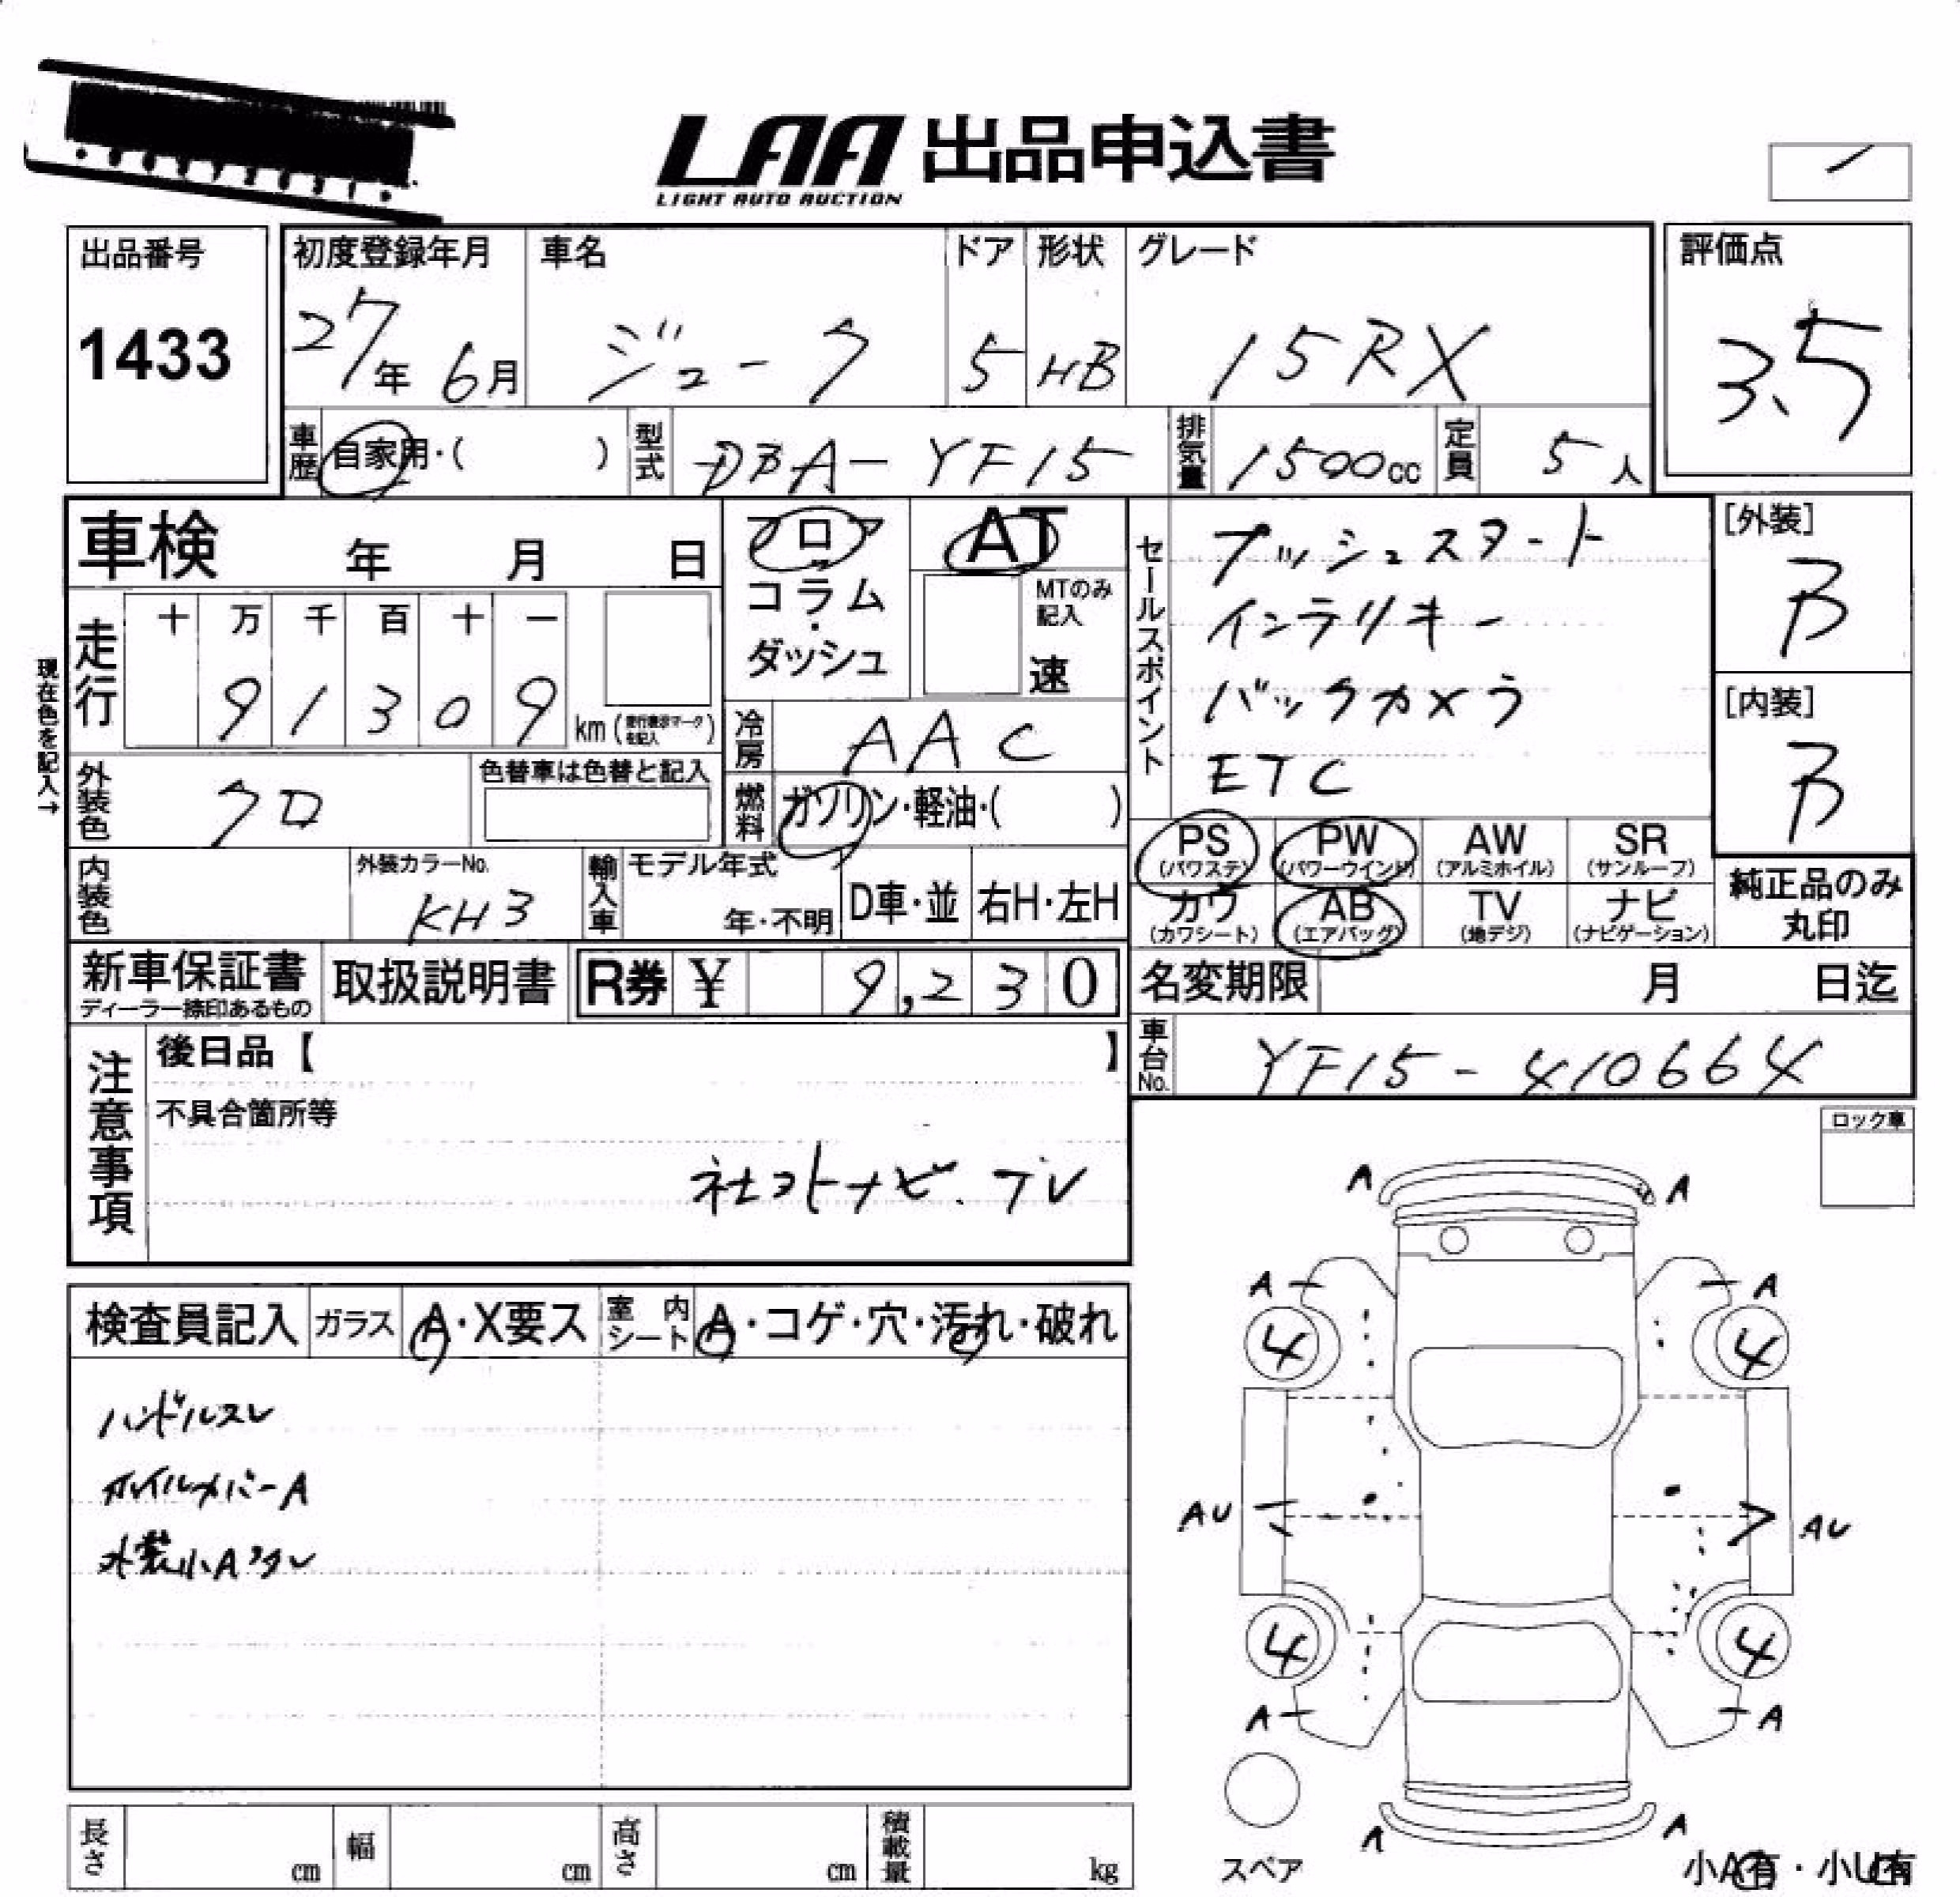 LAA 出品申込書
LIGHT AUTO AUCTION
出品番号
1433
初度登録年月
27年 6月
車名
ジューク
ドア
5
形状
HB
グレード
15RX
評価点
3.5
車歴
自家用・( )
型式
DBA-YF15
排気量
1500cc
定員
5人
車検 年 月 日
フロア
コラム
・
ダッシュ
AT
MTのみ記入
速
セールスポイント
プッシュスタート
インテリキー
バックカメラ
ETC
[外装]
B
[内装]
B
現在色を記入→
走行
十 万 千 百 十 一
9 1 3 0 9 km (走行表示マークを記入)
冷房
AAC
外装色
クロ
色替車は色替と記入
燃料
ガソリン・軽油・( )
PS (パワステ)
PW (パワーウインド)
AW (アルミホイル)
SR (サンルーフ)
カワ (カワシート)
AB (エアバッグ)
TV (地デジ)
ナビ (ナビゲーション)
純正品のみ丸印
内装色
外装カラーNo.
KH3
輸入車
モデル年式
年・不明
D車・並
右H・左H
新車保証書
ディーラー捺印あるもの
取扱説明書
R券 ¥ 9,230
名変期限 月 日迄
車台No.
YF15-410664
注意事項
後日品【 】
不具合箇所等
社外ナビ.TV
ロック車
検査員記入
ガラス
A・X要ス
室内シート
A・コゲ・穴・汚れ・破れ
ハンドルスレ
ホイルカバーA
外装小A
A A
A A
4 4
AU AU
4 4
A A
A A
スペア
小A有・小U有
長さ cm
幅 cm
高さ cm
積載量 kg